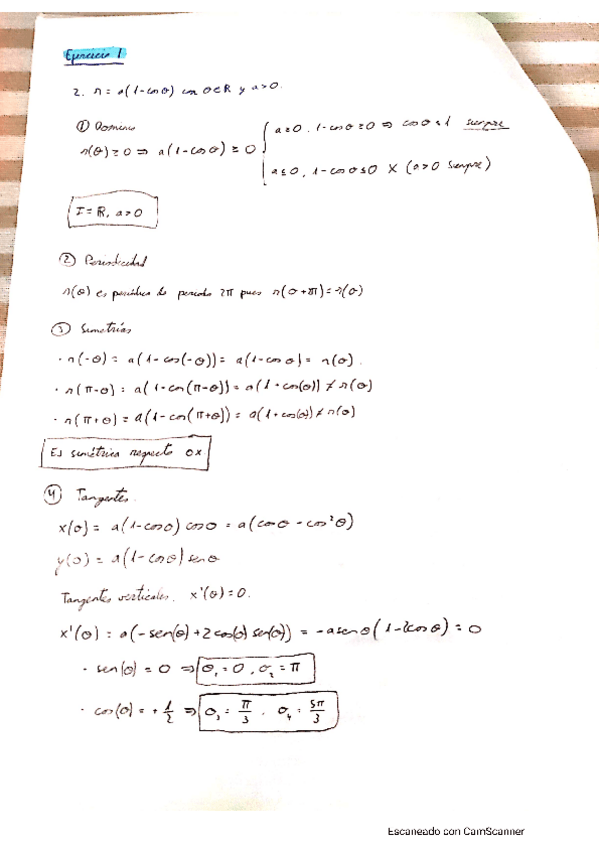 Ejercicio 1
2. r = a(1-cosθ) con θ∈R y a>0.
① Dominio
r(θ) ≥ 0 ⇒ a(1-cosθ) ≥ 0
a≥0, 1-cosθ≥0 ⇒ cosθ≤1 siempre
a≤0, 1-cosθ≤0 X (a>0 siempre)
I = R, a>0
② Periodicidad
r(θ) es periódica de periodo 2π pues r(θ+2π)=r(θ)
③ Simetrías
· r(-θ) = a(1-cos(-θ)) = a(1-cosθ) = r(θ).
· r(π-θ) = a(1-cos(π-θ)) = a(1+cos(θ)) ≠ r(θ)
· r(π+θ) = a(1-cos(π+θ)) = a(1+cos(θ)) ≠ r(θ)
Es simétrica respecto OX
④ Tangentes.
x(θ) = a(1-cosθ) cosθ = a(cosθ - cos²θ)
y(θ) = a(1-cosθ) senθ
Tangentes verticales. x'(θ)=0.
x'(θ) = a(-sen(θ)+2cos(θ) sen(θ)) = -a senθ(1-2cosθ) = 0
· sen(θ) = 0 ⇒ θ₁ = 0, θ₂ = π
· cos(θ) = + 1/2 ⇒ θ₃ = π/3, θ₄ = 5π/3
Escaneado con CamScanner